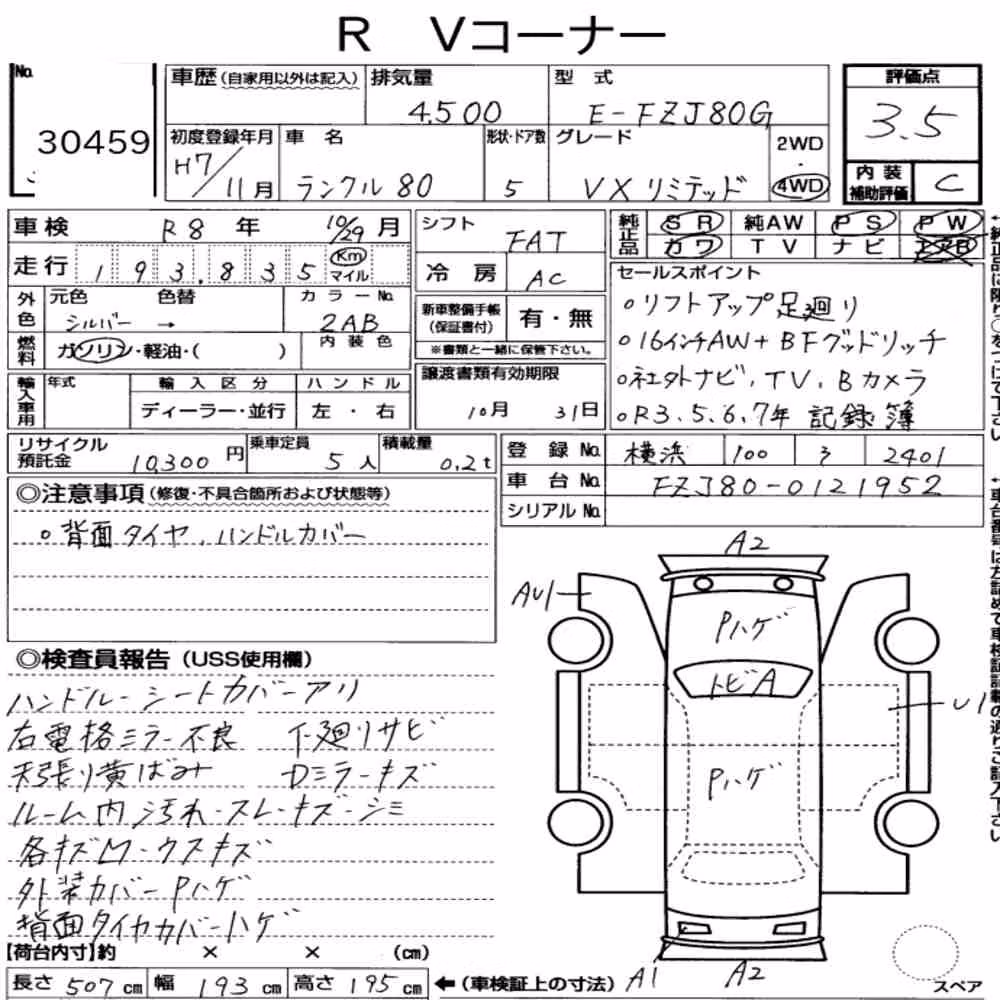 R Vコーナー
No. 30459
車歴(自家用以外は記入) 排気量 4.500 型式 E-FZJ80G
初度登録年月 H7/11月 車名 ランクル80 形状・ドア数 5 グレード VXリミテッド 2WD・4WD
評価点 3.5
内装補助評価 C
車検 R8年 10/29月
走行 193,835 Km マイル
シフト FAT
冷房 AC
純正品 SR 純AW PS PW
カワ TV ナビ エアB
外色 元色 シルバー 色替 → カラーNo. 2AB
燃料 ガソリン・軽油・( ) 内装色
新車整備手帳(保証書付) 有・無
※書類と一緒に保管下さい。
セールスポイント
○リフトアップ足廻り
○16インチAW+BFグッドリッチ
○社外ナビ,TV,Bカメラ
○R3,5,6,7年 記録簿
輸入車用 年式 輸入区分 ディーラー・並行 ハンドル 左・右
譲渡書類有効期限 10月 31日
リサイクル預託金 10,300円 乗車定員 5人 積載量 0.2t
登録No. 横浜 100 2401
車台No. FZJ80-0121952
シリアルNo.
◎注意事項(修復・不具合箇所および状態等)
○背面タイヤ,ハンドルカバー
◎検査員報告(USS使用欄)
ハンドル-シートカバーアリ
右電格ミラー不良 下廻リサビ
天張り黄ばみ Dミラーキズ
ルーム内 汚れ・スレ・キズ・シミ
各キズM・ウスキズ
外装カバーPハゲ
背面タイヤカバーハゲ
A2
AU1
Pハゲ
トビA
U1
Pハゲ
A1
A2
スペア
【荷台内寸】約 × × (cm)
長さ 507cm 幅 193cm 高さ 195cm ←(車検証上の寸法)